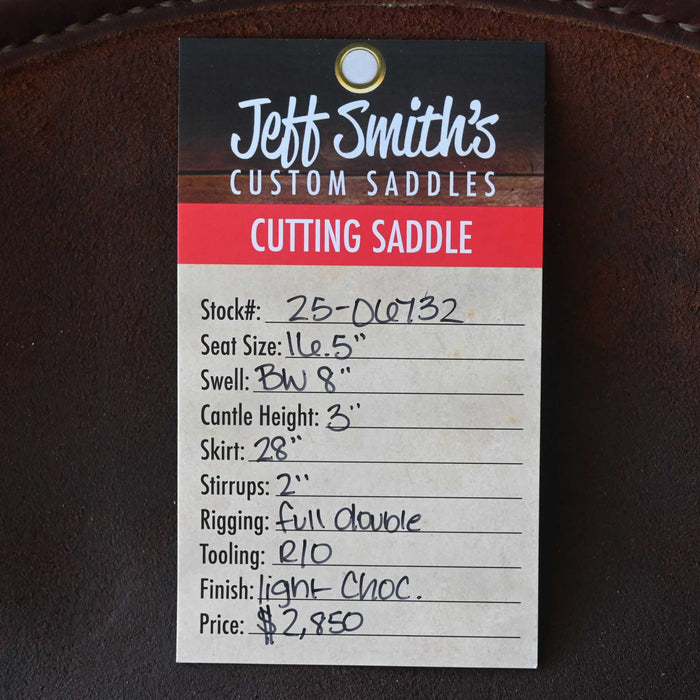 Jeff Smith's
CUSTOM SADDLES
CUTTING SADDLE
Stock#: 25-06732
Seat Size: 16.5"
Swell: BW 8"
Cantle Height: 3"
Skirt: 28"
Stirrups: 2"
Rigging: full double
Tooling: R/O
Finish: light Choc.
Price: $2,850